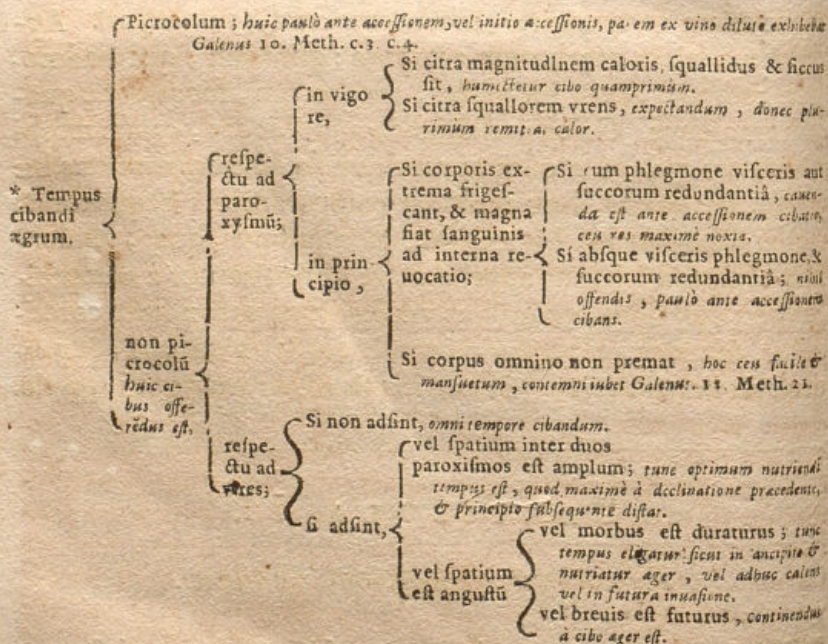 Picrocolum ; huic paulò ante accessionem, vel initio accessionis, pa em ex vino diluto exhibebat
Galenus 10. Meth. c.3 c.4.
* Tempus
cibandi
ægrum.
non pi-
crocolū
huic ci-
bus offe-
rēdus est,
respe-
ctu ad
paro-
xysmū;
in vigo
re,
Si citra magnitudinem caloris, squallidus & siccus
sit, humectetur cibo quamprimum.
Si citra squallorem vrens, expectandum, donec plu-
rimum remit a calor.
in prin-
cipio,
Si corporis ex-
trema friges-
cant, & magna
fiat sanguinis
ad interna re-
uocatio;
Si cum phlegmone visceris aut
succorum redundantiâ, cauen-
da est ante accessionem cibatio,
ceu res maximè noxia.
Si absque visceris phlegmone, &
succorum redundantia; nihil
offendis, paulò ante accessionem
cibans.
Si corpus omnino non premat, hoc ceu facile &
mansuetum, contemni iubet Galenus. 11. Meth. 21.
respe-
ctu ad
vires;
Si non adsint, omni tempore cibandum.
si adsint,
vel spatium inter duos
paroxismos est amplum; tunc optimum nutriendi
tempus est, quod maximè à declinatione præcedente,
& principio subsequente distat.
vel spatium
est angustū
vel morbus est duraturus; tunc
tempus eligatur sicut in ancipite &
nutriatur æger, vel adhuc calens
vel in futura inuasione.
vel breuis est futurus, continendus
à cibo æger est.